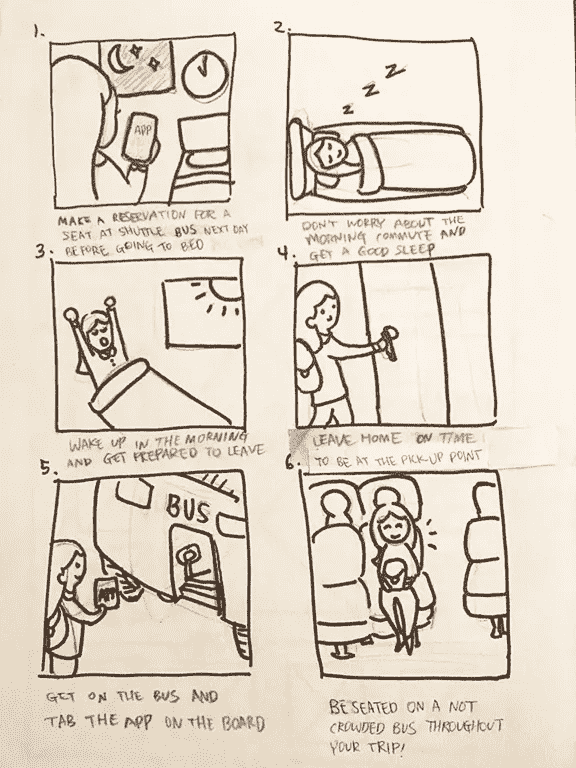 1.
APP
MAKE A RESERVATION FOR A
SEAT AT SHUTTLE BUS NEXT DAY
BEFORE GOING TO BED
2.
z z z
DON'T WORRY ABOUT THE
MORNING COMMUTE AND
GET A GOOD SLEEP
3.
WAKE UP IN THE MORNING
AND GET PREPARED TO LEAVE
4.
LEAVE HOME ON TIME
TO BE AT THE PICK-UP POINT
5.
BUS
APP
GET ON THE BUS AND
TAB THE APP ON THE BOARD
6.
BE SEATED ON A NOT
CROWDED BUS THROUGHOUT
YOUR TRIP!